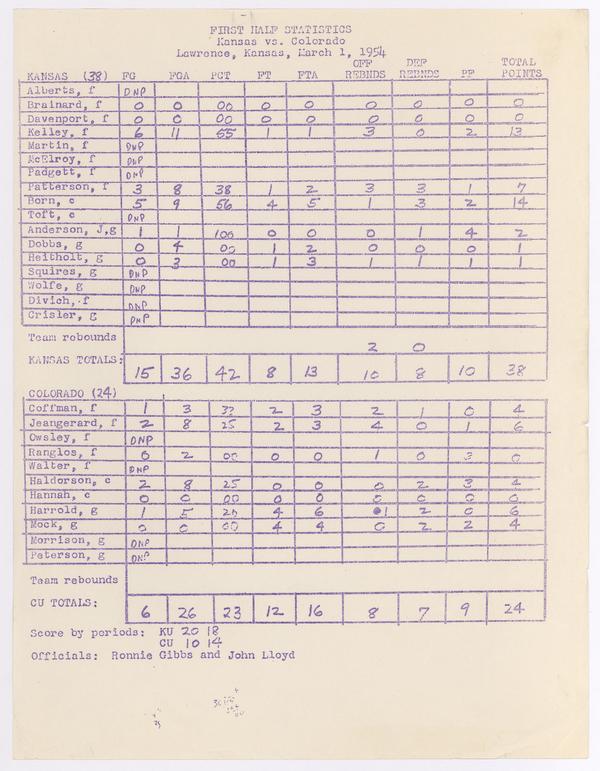 FIRST HALF STATISTICS
Kansas vs. Colorado
Lawrence, Kansas, March 1, 1954
KANSAS (38) FG FGA PCT FT FTA OFF REBNDS DEF REBNDS PF TOTAL POINTS
Alberts, f DNP
Brainard, f 0 0 00 0 0 0 0 0 0
Davenport, f 0 0 00 0 0 0 0 0 0
Kelley, f 6 11 55 1 1 3 0 2 13
Martin, f DNP
McElroy, f DNP
Padgett, f DNP
Patterson, f 3 8 38 1 2 3 3 1 7
Born, c 5 9 56 4 5 1 3 2 14
Toft, c DNP
Anderson, J,g 1 1 100 0 0 0 1 4 2
Dobbs, g 0 4 00 1 2 0 0 0 1
Heitholt, g 0 3 00 1 3 1 1 1 1
Squires, g DNP
Wolfe, g DNP
Divich, f DNP
Crisler, g DNP
Team rebounds 2 0
KANSAS TOTALS: 15 36 42 8 13 10 8 10 38
COLORADO (24)
Coffman, f 1 3 33 2 3 2 1 0 4
Jeangerard, f 2 8 25 2 3 4 0 1 6
Owsley, f DNP
Ranglos, f 0 2 00 0 0 1 0 3 0
Walter, f DNP
Haldorson, c 2 8 25 0 0 0 2 3 4
Hannah, c 0 0 00 0 0 0 0 0 0
Harrold, g 1 5 20 4 6 1 2 0 6
Mock, g 0 0 00 4 4 0 2 2 4
Morrison, g DNP
Peterson, g DNP
Team rebounds
CU TOTALS: 6 26 23 12 16 8 7 9 24
Score by periods: KU 20 18
CU 10 14
Officials: Ronnie Gibbs and John Lloyd